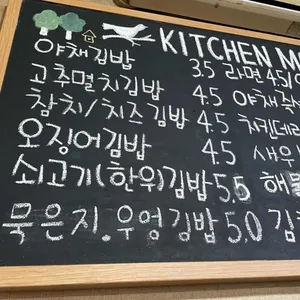 KITCHEN M
야채김밥 3.5 라면 4.5/
고추멸치김밥 4.5 야채
참치/치즈김밥 4.5 치킨
오징어김밥 4.5 새우
쇠고기(한위)김밥 5.5 해물
묵은지.우엉김밥 5.0 김